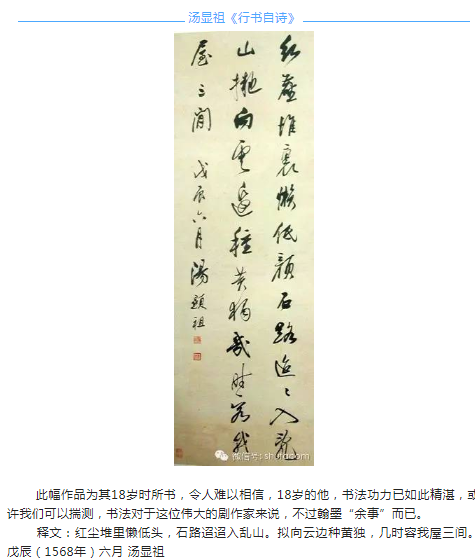 汤显祖《行书自诗》
紅塵堆裏懶低顏石路迢〻入亂
山擬向雲邊種黃獨幾時容我
屋三間 戊辰六月湯顯祖
微信号: shufadom
此幅作品为其18岁时所书，令人难以相信，18岁的他，书法功力已如此精湛，或
许我们可以揣测，书法对于这位伟大的剧作家来说，不过翰墨“余事”而已。
释文：红尘堆里懒低头，石路迢迢入乱山。拟向云边种黄独，几时容我屋三间。
戊辰（1568年）六月 汤显祖